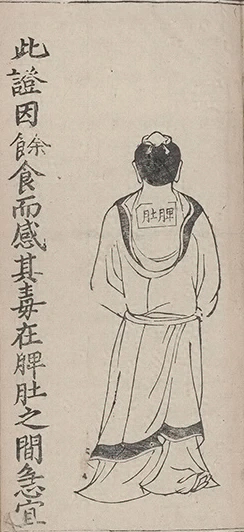 脾肚
此證因餘食而感其毒在脾肚之間急宜